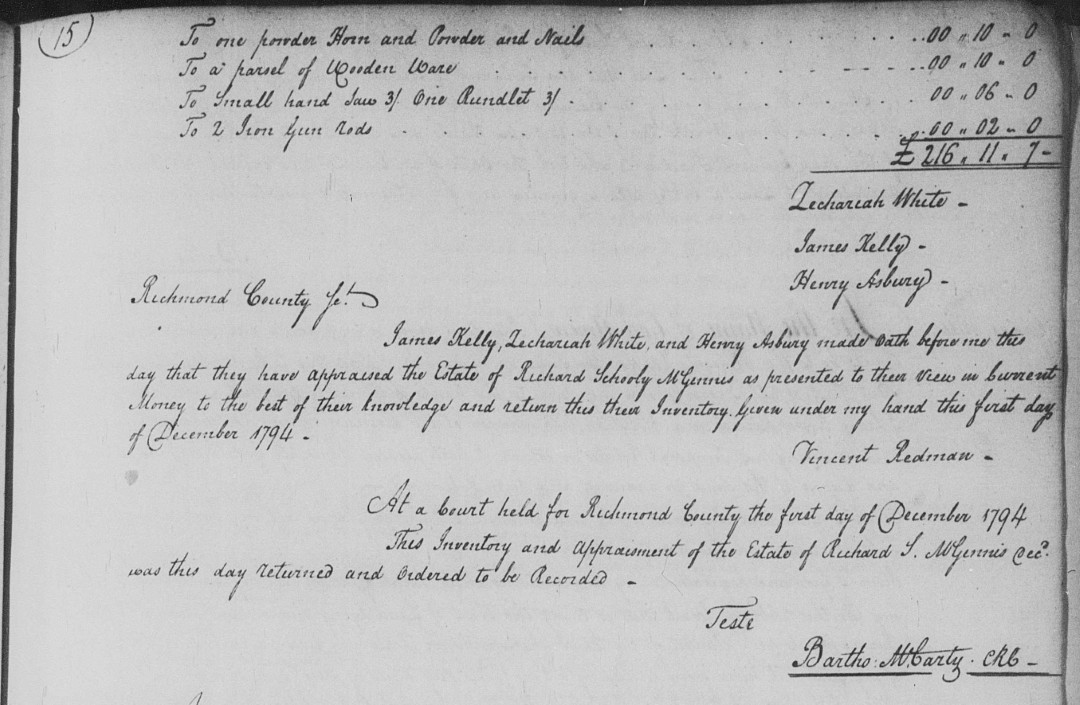 15
To one powder Horn and Powder and Nails . . . . . . . . . . 00 " 10 " 0
To a parsel of Wooden Ware . . . . . . . . . . 00 " 10 " 0
To Small hand Saw 3/ One Rundlet 3/ . . . . . . . . 00 " 06 " 0
To 2 Iron Gun rods . . 00 " 02 " 0
£ 216 " 11 " 7 -
Zechariah White -
James Kelly -
Henry Asbury -
Richmond County Sct.
James Kelly, Zechariah White, and Henry Asbury made Oath before me this
day that they have appraised the Estate of Richard Schooly McGennis as presented to their View in Current
Money to the best of their knowledge and return this their Inventory. Given under my hand this first day
of December 1794 -
Vincent Redman -
At a Court held for Richmond County the first day of December 1794
This Inventory and Appraisment of the Estate of Richard S. McGennis Decd.
was this day returned and Ordered to be Recorded -
Teste
Bartho: McCarty. CRC -